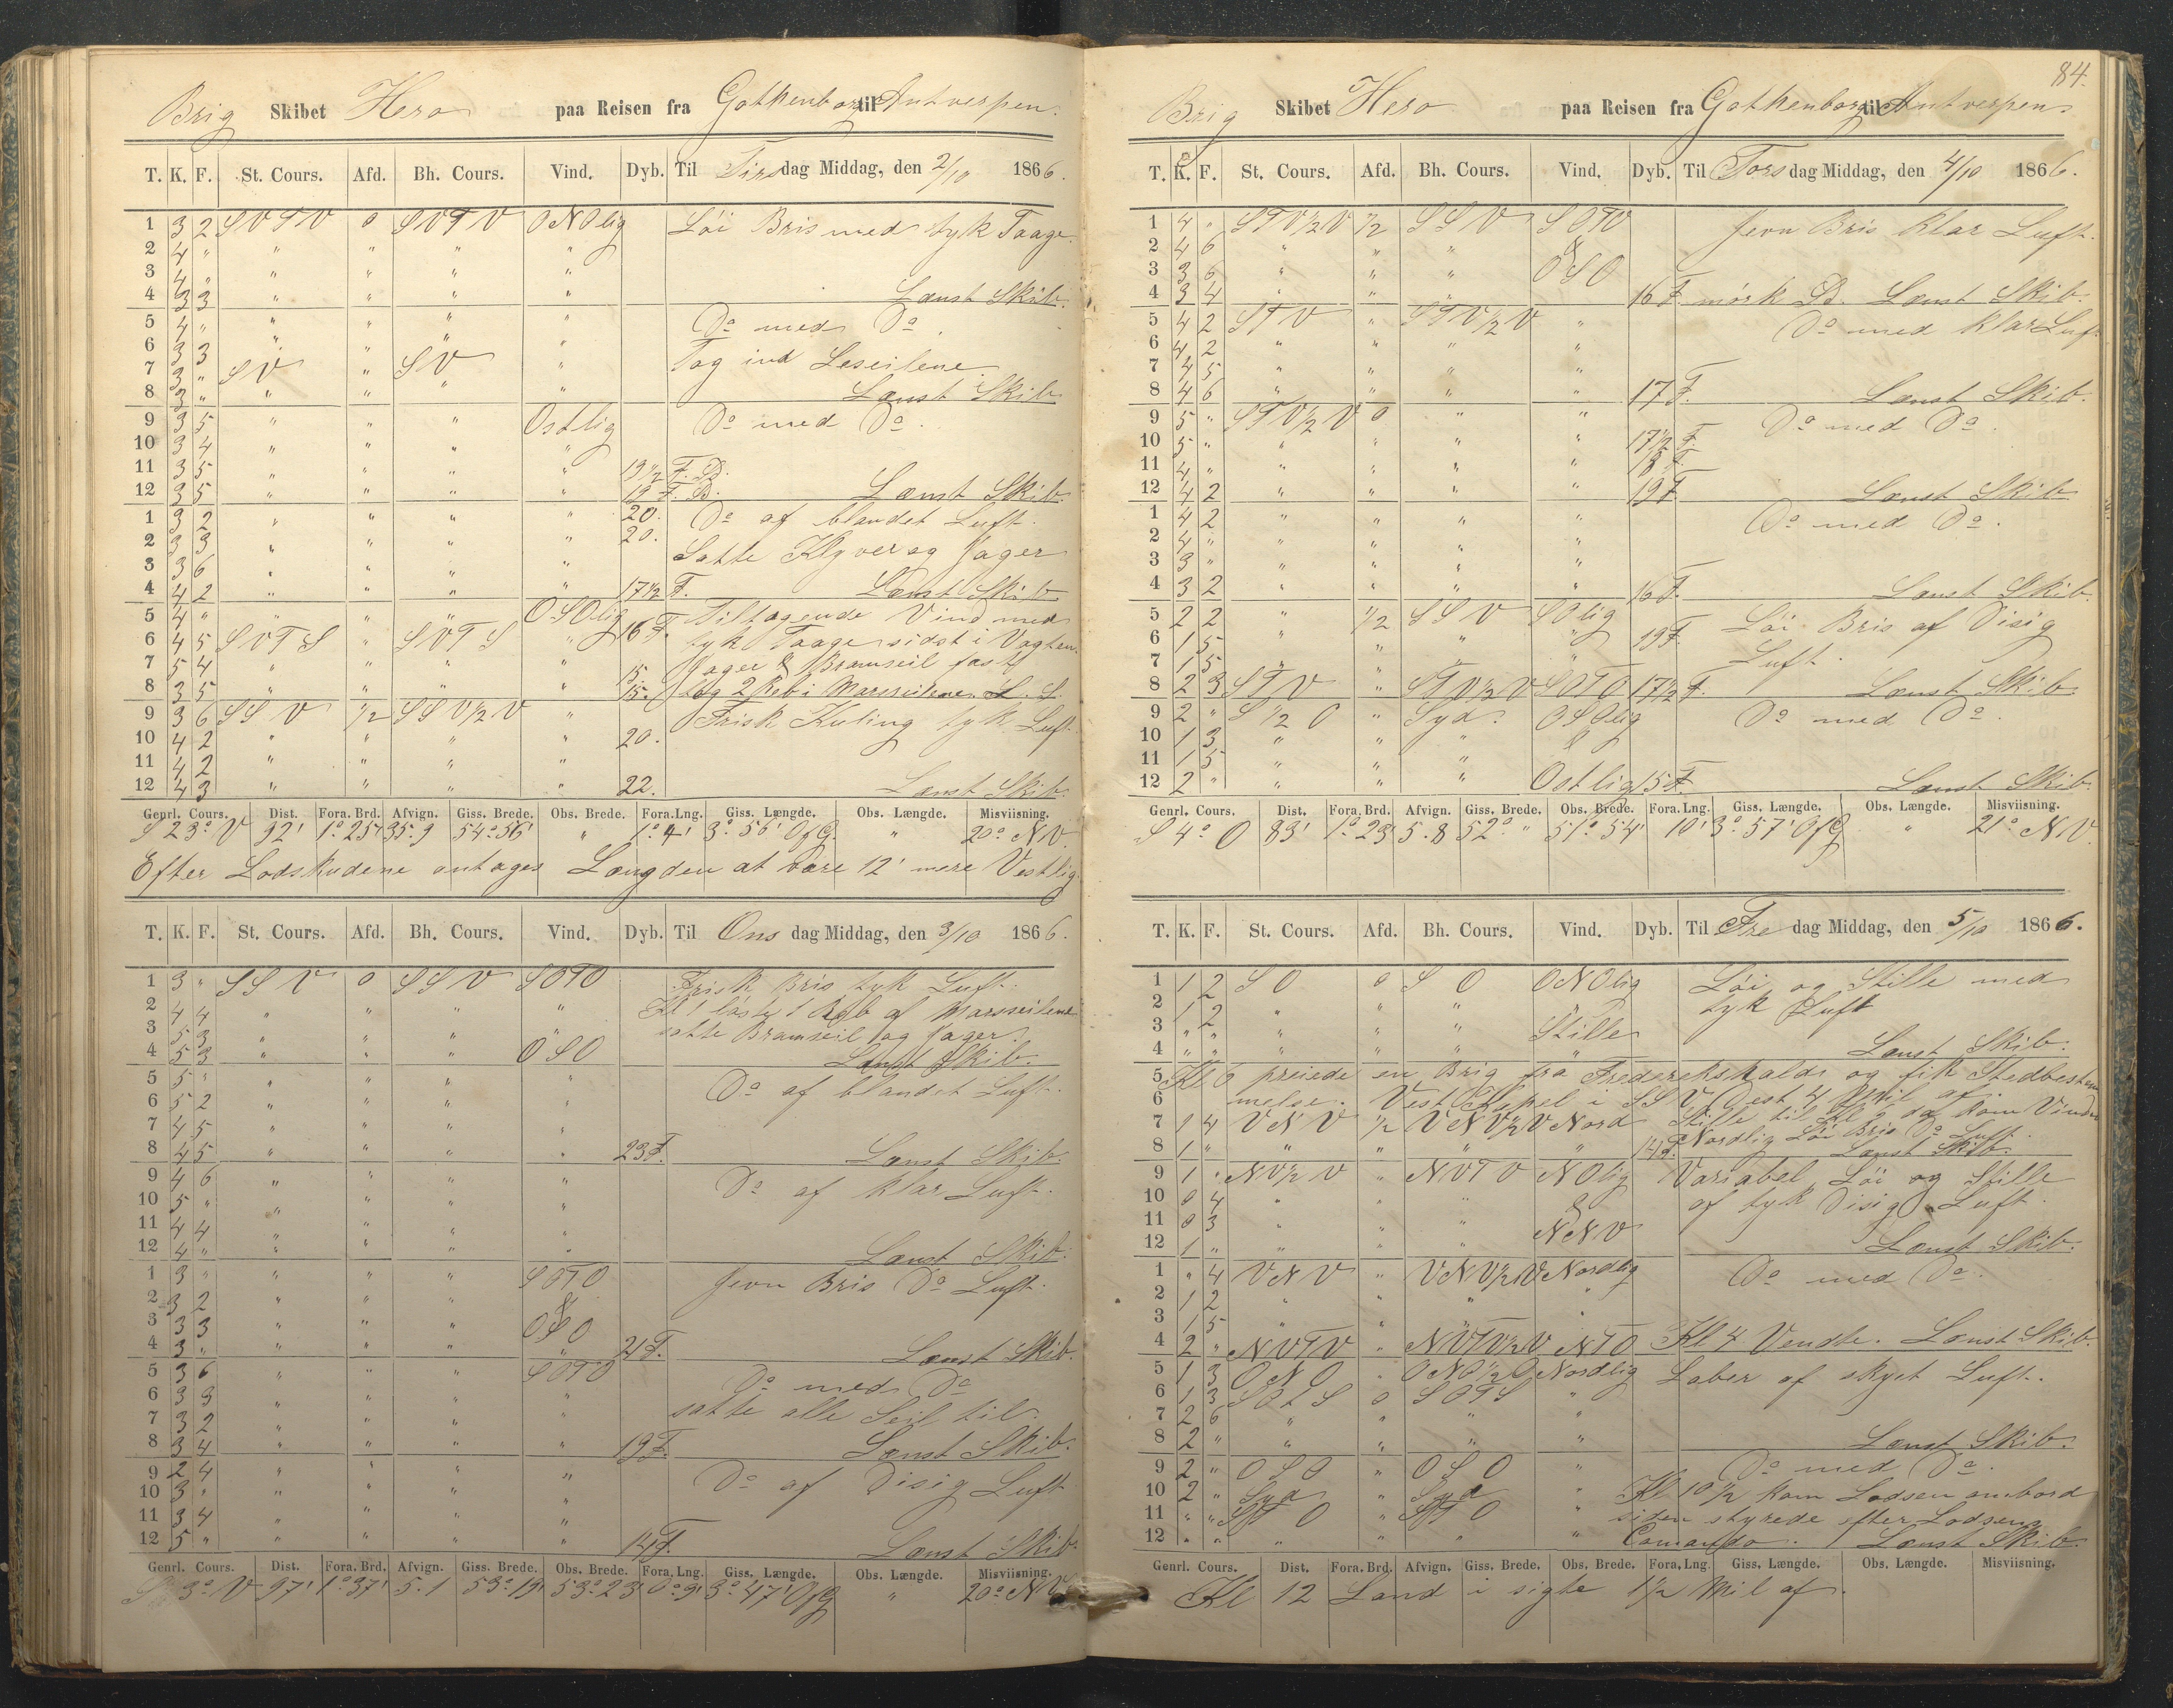 Brig Skibet Hero paa Reisen fra Gothenborg til Antverpen.
T. K. F. St. Cours. Afd. Bh. Cours. Vind. Dyb. Til Tirsdag Middag, den 2/10 1866.
1 3 2 SVTV 0 SVTV ONOlig Löi Bris med tyk Taage.
2 4 " " " " "
3 4 " " " " "
4 3 3 " " " " Lænst Skib.
5 4 " " " " " Do med Do.
6 3 3 " " " "
7 3 " SV " SV " Tog ind Leseilene.
8 3 " " " " " Lænst Skib.
9 3 5 " " " Ostlig Do med Do.
10 3 4 " " " "
11 3 5 " " " " 19 1/2 F. B.
12 3 5 " " " " 19 F. B. Lænst Skib.
1 3 2 " " " " 20. Do af blandet Luft.
2 3 3 " " " " 20.
3 3 6 " " " " Satte Klyver og Jager
4 4 2 " " " " 17 1/2 F. Lænst Skib
5 4 " " " " OSOlig Tiltagende Vind med
6 4 5 SVTS " SVTS " 16 F. tyk Taage sidst i Vagten
7 5 4 " " " " 15. Jager & Bramseil fast
8 3 5 " " " " 15. tog 2 Reb i Merseilene. L. S.
9 3 6 SSV 1/2 SSV1/2V " Frisk Kuling tyk Luft
10 4 2 " " " " 20.
11 4 2 " " " "
12 4 3 " " " " 22. Lænst Skib.
Genrl. Cours. Dist. Fora. Brd. Afvign. Giss. Brede. Obs. Brede. Fora. Lng. Giss. Længde. Obs. Længde. Misviisning.
S 23° V 92' 1°25' 35.9 54°56' " 1°4' 3°56' OfG. " 20° NV.
Efter Lodskudene antages Længden at være 12' mere Vestlig
T. K. F. St. Cours. Afd. Bh. Cours. Vind. Dyb. Til Onsdag Middag, den 3/10 1866.
1 3 " SSV 0 SSV SOTO Frisk Bris tyk Luft.
2 4 4 " " " " Kl 1 löste 1 Reb af Marsseilene
3 5 3 " " " " satte Bramseil og Jager.
4 5 3 " " " OSO Lænst Skib.
5 5 " " " " " Do af blandet Luft.
6 5 2 " " " "
7 4 5 " " " "
8 4 5 " " " " 23 F. Lænst Skib.
9 4 6 " " " " Do af klar Luft.
10 5 " " " " "
11 4 4 " " " "
12 4 " " " " " Lænst Skib.
1 3 " " " " SOTO Jevn Bris Do Luft.
2 3 2 " " " &
3 3 3 " " " OSO
4 3 " " " " " 21 F. Lænst Skib.
5 3 6 " " " SOTO Do med Do
6 3 3 " " " " satte alle Seil til.
7 3 2 " " " "
8 3 4 " " " " 19 F. Lænst Skib.
9 2 4 " " " " Do af Disig Luft
10 3 " " " " "
11 3 4 " " " "
12 5 " " " " " 14 F. Lænst Skib.
Genrl. Cours. Dist. Fora. Brd. Afvign. Giss. Brede. Obs. Brede. Fora. Lng. Giss. Længde. Obs. Længde. Misviisning.
S 3° V 97' 1°37' 5.1 53°19' 53°23' 0°9' 3°47' OfG " 20° NV
84.
Brig Skibet Hero paa Reisen fra Gothenborg til Antverpen.
T. K. F. St. Cours. Afd. Bh. Cours. Vind. Dyb. Til Torsdag Middag, den 4/10 1866.
1 4 " STV1/2V 1/2 SSV SOTO Jevn Bris klar Luft.
2 4 6 " " " &
3 3 6 " " " OSO
4 3 4 " " " 16 F. mørk B. Lænst Skib.
5 4 2 STV " STV1/2V " Do med klar Luft
6 4 2 " " " "
7 4 5 " " " "
8 4 6 " " " " 17 F. Lænst Skib.
9 5 " STV1/2V 0 " " Do med Do.
10 5 " " " " " 17 1/2 F.
11 4 " " " " " 18 F.
12 4 2 " " " " 19 F. Lænst Skib
1 4 2 " " " " Do med Do.
2 4 " " " " "
3 3 " " " " "
4 3 2 " " " " 16 F. Lænst Skib.
5 2 2 " 1/2 SSV SOlig Löi Bris af Disig
6 1 5 " " " " 19 F. Luft.
7 1 5 " " " "
8 2 3 STV " STV1/2V SOTO 17 1/2 F. Lænst Skib
9 2 " S1/2O " Syd. OSOlig Do med Do.
10 1 3 " " " &
11 1 5 " " "
12 2 " " " " Ostlig 15 F. Lænst Skib.
Genrl. Cours. Dist. Fora. Brd. Afvign. Giss. Brede. Obs. Brede. Fora. Lng. Giss. Længde. Obs. Længde. Misviisning.
S 4° O 83' 1°23' 5.8 52° " 51°54' 10' 3°57' OfG " 21° NV.
T. K. F. St. Cours. Afd. Bh. Cours. Vind. Dyb. Til Fredag Middag, den 5/10 1866.
1 1 2 SO 0 SO ONOlig Löi og Stille med
2 1 2 " " " tyk Luft
3 " " " " " Stille
4 " " " " " " Lænst Skib.
5 Kl 6 preiede en Brig fra Frederekshald og fik Stedbestem
6 melse. Vest Kapel i SSV Dest 4 Mil af.
7 1 4 VNV 1/2 VNV1/2V Nord Stille til Kl 7 da kom Vinden
8 1 " " " " " 14 F. Nordlig Löi Bris Do Luft. Lænst Skib.
9 1 " NV1/2V " NVTV NOlig Variabel Löi og Stille
10 0 4 " " " & af tyk Disig Luft.
11 0 3 " " " NNV
12 1 " " " " Lænst Skib.
1 " 4 VNV " VNV1/2V Nordlig Do med Do.
2 1 2 " " " "
3 1 5 " " "
4 2 " NVTV " NVTV1/2V NTO Kl 4 Vendte. Lænst Skib.
5 1 3 ONO " ONO1/2O Nordlig Laber af skyet Luft.
6 1 3 SOtS 0 SOTS "
7 2 6 " " " "
8 2 " " " " " Lænst Skib.
9 2 " OSO " OSO " Do med Do.
10 2 " Syd " Syd " Kl 10 1/2 kom Lodsen ombord
11 " " STO " STO " siden styrede efter Lodsens
12 " " " " " " Comando. Lænst Skib.
Genrl. Cours. Dist. Fora. Brd. Afvign. Giss. Brede. Obs. Brede. Fora. Lng. Giss. Længde. Obs. Længde. Misviisning.
Kl 12 Land i sigte 1 1/2 Mil af.